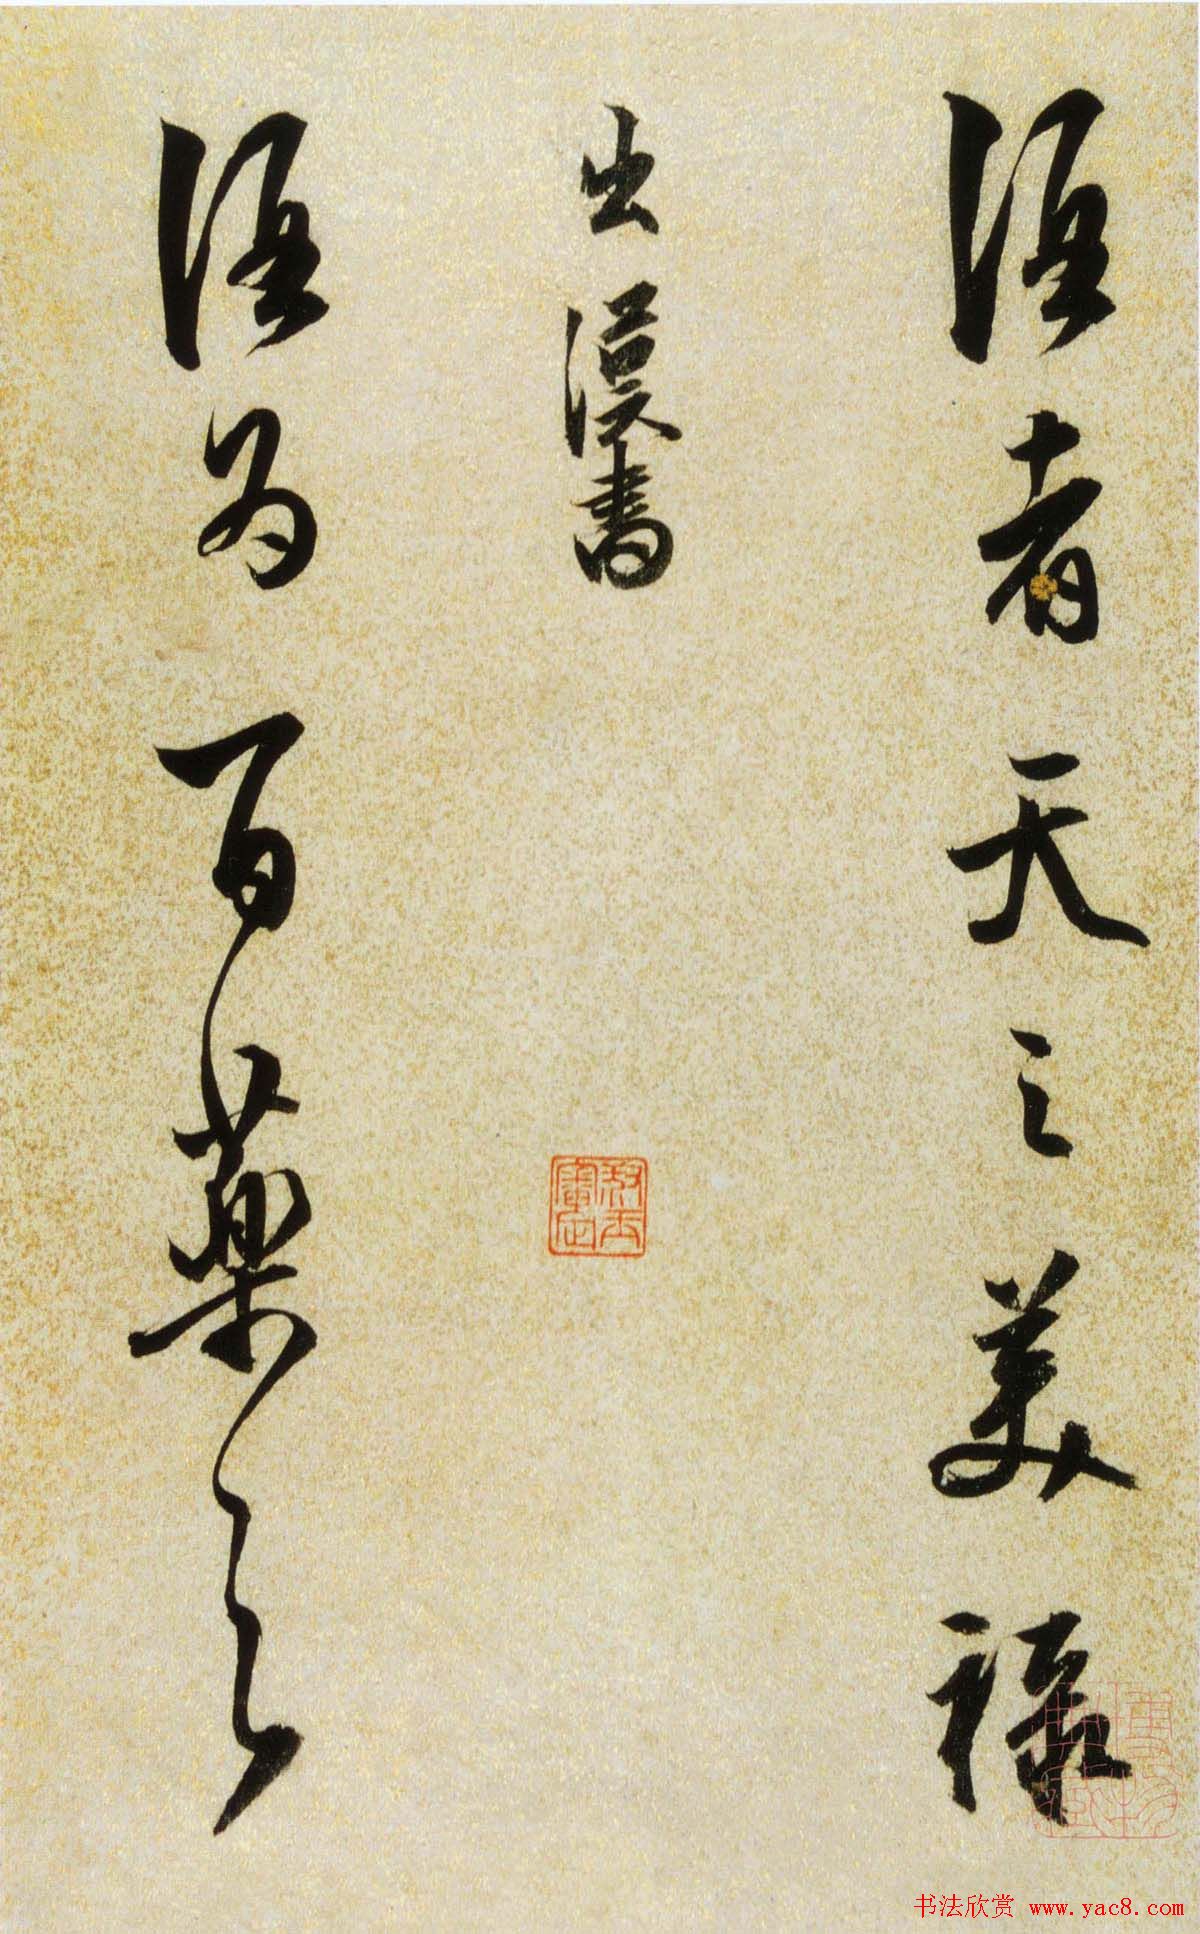 酒者天之美祿
出漢書
酒為百藥之
书法欣赏 www.yac8.com